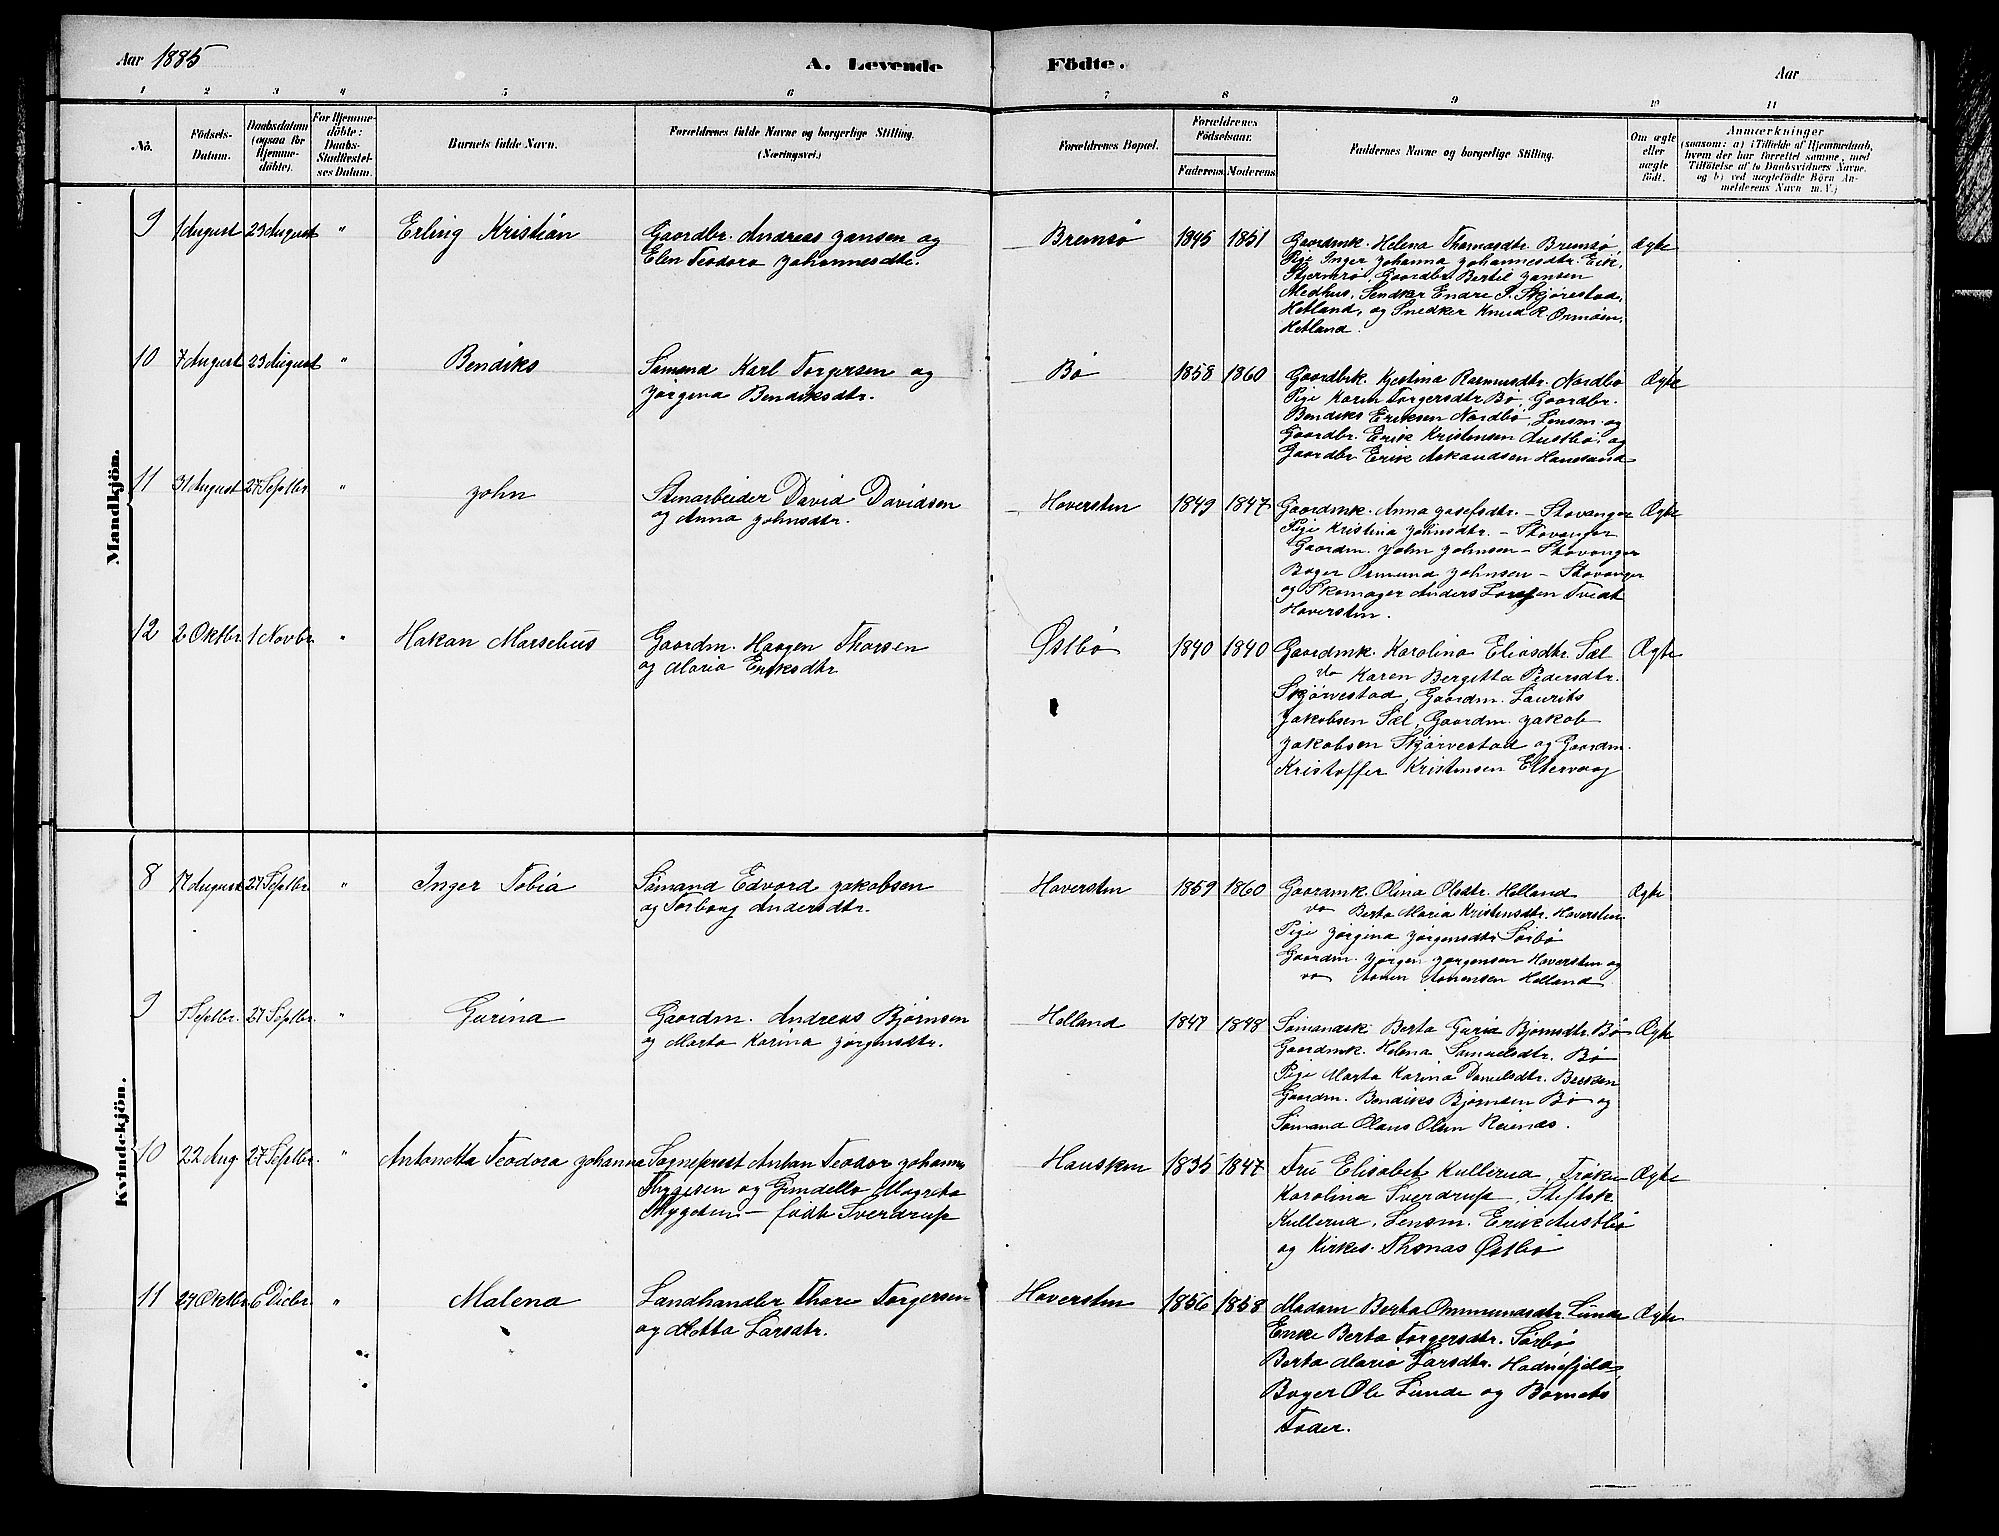 Aar 1885
A. Levende Födte.
Aar
1 2 3 4 5 6 7 8 9 10 11
No.
Födsels-Datum.
Daabsdatum (ogsaa for Hjemme-döbte).
For Hjemme-döbte: Daabs-Stadfæstel-ses Datum.
Barnets fulde Navn.
Forældrenes fulde Navne og borgerlige Stilling.
(Næringsvei.)
Forældrenes Bopæl.
Forældrenes Födselsaar.
Faderens. Moderens.
Faddernes Navne og borgerlige Stilling.
Om ægte eller uægte født.
Anmærkninger
(saasom: a) i Tilfælde af Hjemmedaab,
hvem der har forrettet samme, med
Tilföielse af to Daabsvidners Navne,
og b) ved uægtefödte Börn An-
melderens Navn m. V.)
Mandkjön.
9 1 August 23 August " Erling Kristian
Gaardbr. Andreas Jansen og
Elen Teodora Johannesdtr.
Bremsø 1845 1851
Gaardmk. Helena Thomasdtr. Bremsø,
Pige Inger Johanna Johannesdtr. Eik,
Gaardbr. Bertil Jansen
Medhus, Snedker Endre P. Skjørestad,
Hetland, og Snedker Knud R. Ormøen,
Hetland.
ægte
10 7 August 23 August " Bendiks
Sømand Karl Torgersen og
Jørgina Bendiksdtr.
Bø 1858 1860
Gaardbrk. Kjestina Rasmusdtr. Nordbø
Pige Karen Torgersdtr Bø, Gaardbr.
Bendiks Eriksen Nordbø, Lensm. og
Gaardbr. Erik Kristensen Austbø, og
Gaardbr Erik Askaudsen Hausland
Ægte
11 31 August 27 Septbr " John
Stenarbeider David Davidsen
og Anna Johnsdtr.
Haversten 1849 1847
Gaardmk. Anna Josefsdtr. - Stavanger
Pige Kristina Johnsdtr. - Stavanger
Gaardm. John Johnsen - Stavanger
Bager Osmund Johnsen - Stavanger
og Skomager Anders Tveit
Haversten.
Ægte
12 2 Oktbr 1 Novbr " Hakan Marselius
Gaardm. Haagen Thorsen
og Maria Eriksdtr.
Østbø 1840 1840
Gaardmk. Karolina Eliasdtr. Sæl
do Karen Bergitta Pedersdtr.
Skjørvestad, Gaardm. Laurits
Jakobsen Sæl, Gaardm. Jakob
Jakobsen Skjørvestad og Gaardm.
Kristoffer Kristensen Eltervaag
Ægte
Kvindekjön.
8 17 August 27 Septbr " Inger Tobia
Sømand Edvard Jakobsen
og Torborg Andersdtr.
Haversten 1859 1860
Gaardmk. Olina Olsdtr. Helland
do Berta Maria Kristensdtr. Haversten
Pige Jørgina Jørgensdtr Sørbø
Gaardm. Jørgen Jørgensen Haversten og
do Helland.
Ægte
9 Septbr. 27 Septbr. " Gurina
Gaardm. Andreas Bjørnsen
og Marta Karina Jørgensdtr.
Helland 1847 1848
Sømandsk. Berta Guria Bjørnsdtr. Bø
Gaardmk. Helena Samuelsdtr. Bø
Pige Marta Karina Danielsdtr. Bærken
Gaardm. Bendiks Bjørnsen Bø og
Sømand Olaus Olsen Reinæs.
Ægte
10 22 Aug 27 Septbr. " Antonetta Teodora Johanna
Sogneprest Antan Teodor Johannes
Thygesen og Gundella Magreta
Thygesen - født Sverdrup
Hausken 1835 1847
Fru Elisabet Kullerud, Frøken
Karolina Sverdrup, Stiftsk.
Kullerud, Lensm. Erik Austbø
og Kirkes. Thomas Østbø
Ægte
11 24 Oktbr. 6 Decbr. " Malena
Landhandler Thore Torgersen
og Metta Larsdtr.
Haversten 1856 1858
Madam Berta Ommundsdtr. Lunde
Enke Berta Torgersdtr. Sørbø
Berta Maria Larsdtr. Hadnefjeld,
Bager Ole Lunde og Barnets
Fader.
Ægte